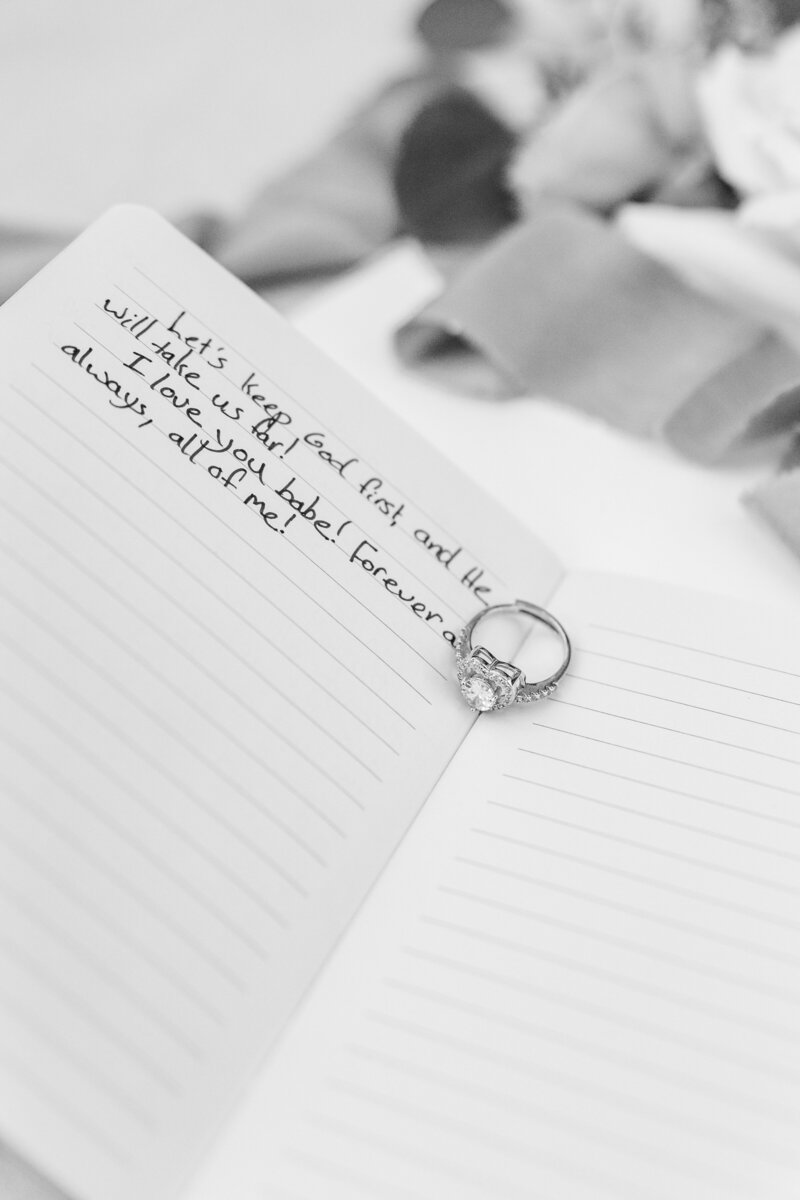 Let's keep God first, and He
will take us far!
I love you babe! Forever a
always, all of me!